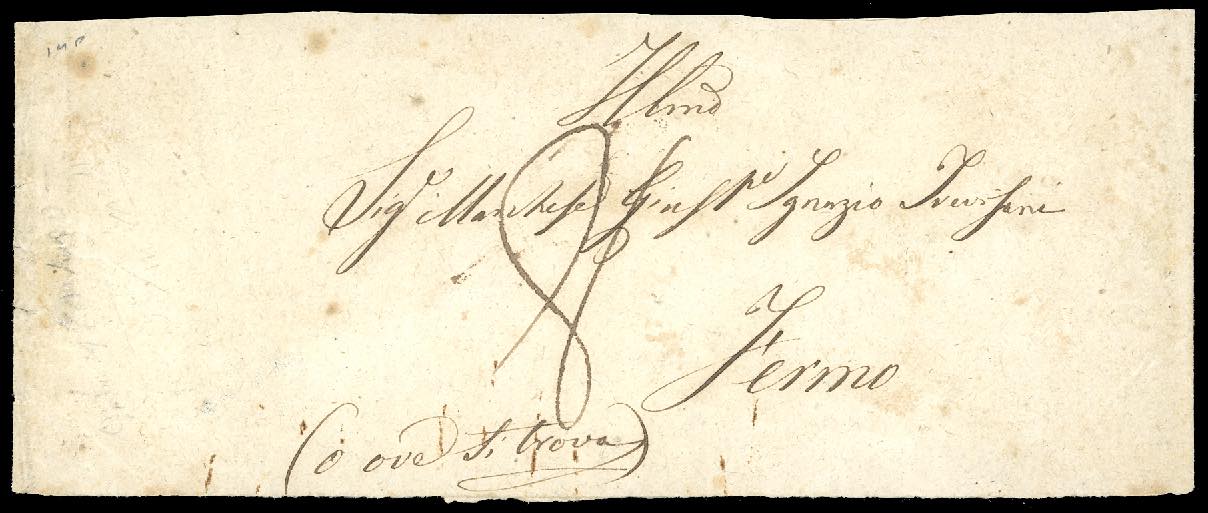 Illmo
Sigr Marchese Giuspe Ignazio Trevisani
8
Fermo
(o ove si trova)